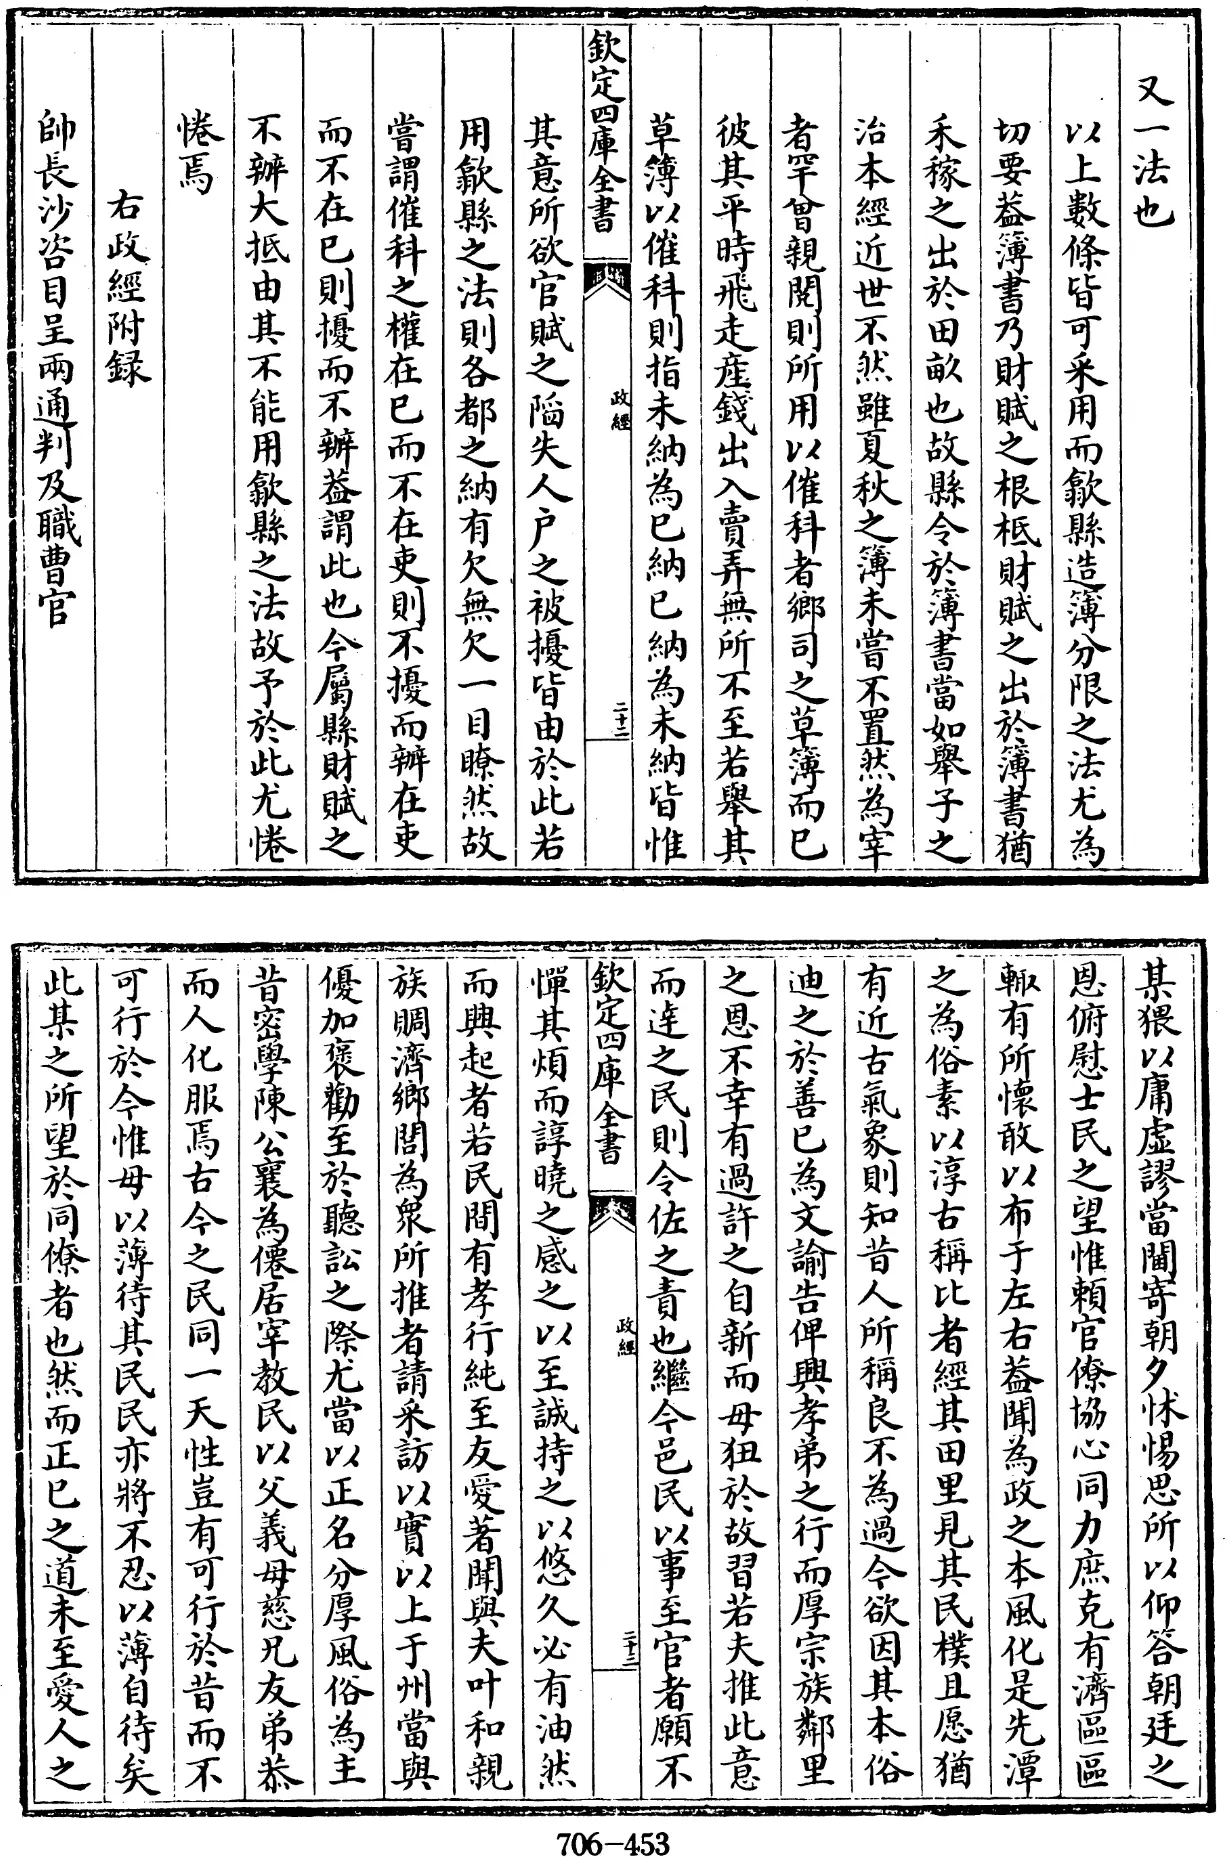 又一法也
以上數條皆可采用而歙縣造簿分限之法尤為
切要葢簿書乃財賦之根柢財賦之出於簿書猶
禾稼之出於田畝也故縣令於簿書當如舉子之
治本經近世不然雖夏秋之簿未嘗不置然為宰
者罕曾親閱則所用以催科者鄉司之草簿而已
彼其平時飛走產錢出入賣弄無所不至若舉其
草簿以催科則指未納為已納已納為未納皆惟
欽定四庫全書
政經
二十二
其意所欲官賦之陷失人户之被擾皆由於此若
用歙縣之法則各都之納有欠無欠一目瞭然故
嘗謂催科之權在已而不在吏則不擾而辦在吏
而不在已則擾而不辦葢謂此也今屬縣財賦之
不辦大抵由其不能用歙縣之法故予於此尤惓
惓焉
右政經附録
帥長沙咨目呈兩通判及職曹官
某猥以庸虛謬當閫寄朝夕怵惕思所以仰答朝廷之
恩俯慰士民之望惟賴官僚協心同力庶克有濟區區
輙有所懷敢以布于左右葢聞為政之本風化是先潭
之為俗素以淳古稱比者經其田里見其民樸且愿猶
有近古氣象則知昔人所稱良不為過今欲因其本俗
迪之於善已為文諭告俾興孝弟之行而厚宗族鄰里
之恩不幸有過許之自新而毋狃於故習若夫推此意
而達之民則令佐之責也繼今邑民以事至官者願不
欽定四庫全書
政經
二十三
憚其煩而諄曉之感之以至誠持之以悠久必有油然
而興起者若民間有孝行純至友愛著聞與夫叶和親
族賙濟鄉閭為衆所推者請采訪以實以上于州當與
優加褒勸至於聽訟之際尤當以正名分厚風俗為主
昔密學陳公襄為僊居宰教民以父義母慈兄友弟恭
而人化服焉古今之民同一天性豈有可行於昔而不
可行於今惟毋以薄待其民民亦將不忍以薄自待矣
此某之所望於同僚者也然而正已之道未至愛人之
706-453